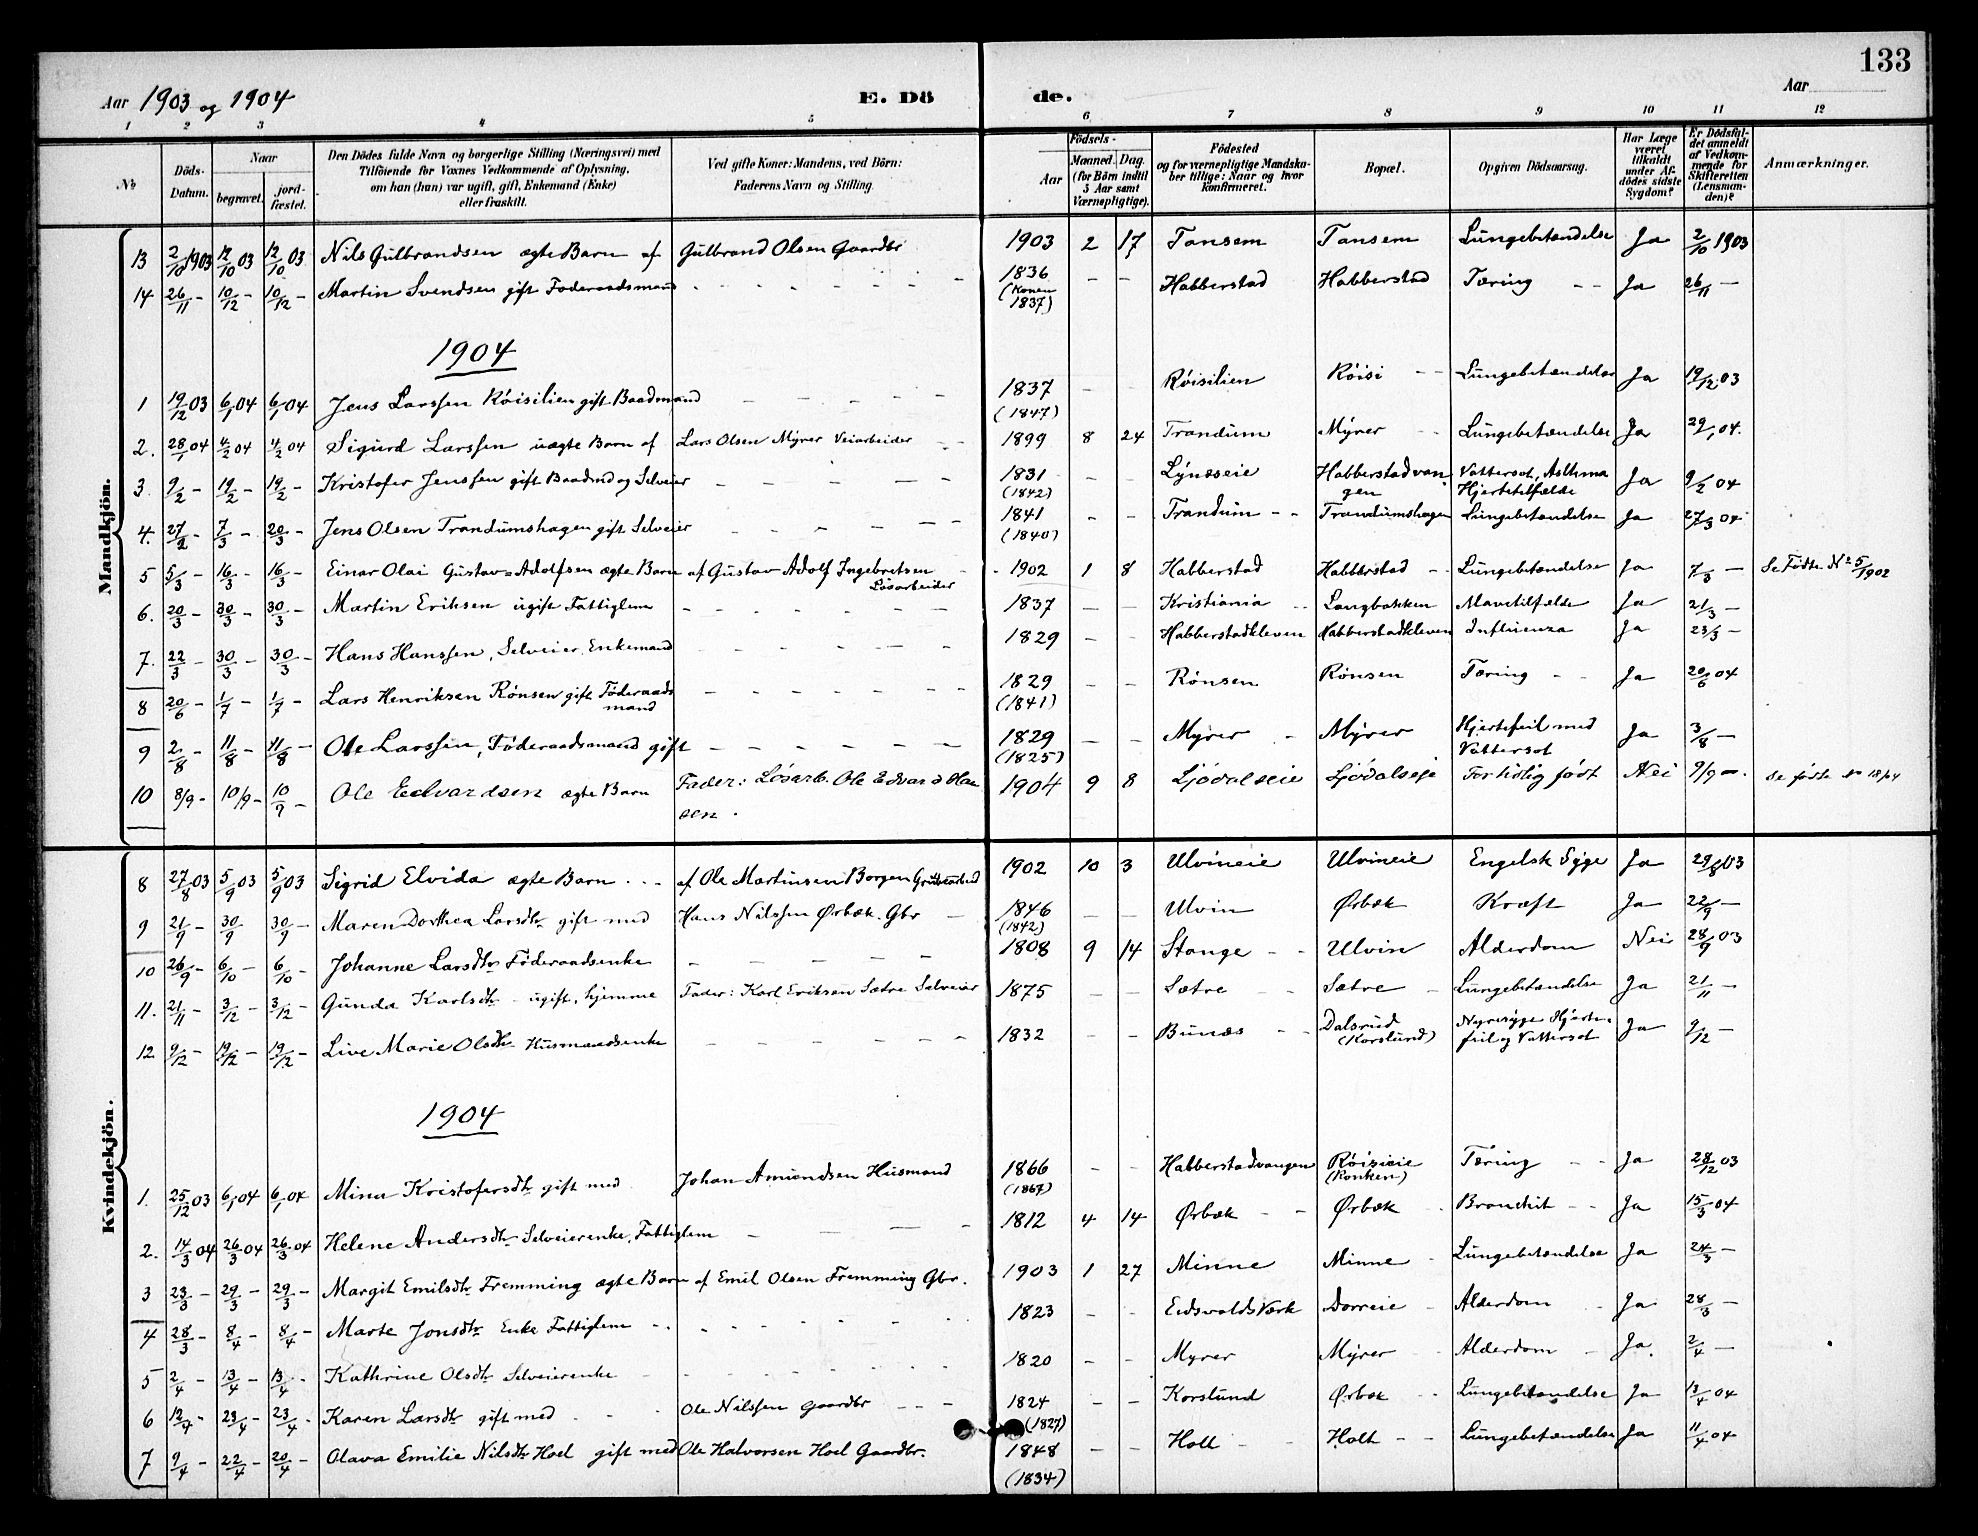 133
Aar 1903 og 1904 E. Dö de. Aar
1 2 3 4 5 6 7 8 9 10 11 12
No
Döds-Datum.
Naar
begravet.
jord-fæstet.
Den Dödes fulde Navn og borgerlige Stilling (Næringsvei) med
Tilföiende for Voxnes Vedkommende af Oplysning,
om han (hun) var ugift, gift, Enkemand (Enke)
eller fraskilt.
Ved gifte Koner: Mandens, ved Börn:
Faderens Navn og Stilling.
Födsels-
Aar
Maaned. Dag.
(for Börn indtil
5 Aar samt
Værnepligtige).
Födested
og for værnepligtige Mandska-
ber tillige: Naar og hvor
konfirmeret.
Bopæl.
Opgiven Dödsaarsag.
Har Læge
været
tilkaldt
under Af-
dödes sidste
Sygdom?
Er Dödsfal-
det anmeldt
af Vedkom-
mende for
Skifteretten
(Lensman-
den)?
Anmærkninger.
Mandkjön.
13 2/10 1903 12/10 03 12/10 03 Nils Gulbrandsen ægte Barn af Gulbrand Olsen Gaardbr 1903 2 17 Tansem Tansem Lungebetændelse Ja 2/10 1903
14 26/11 - 10/12 - 10/12 - Martin Svendsen gift Føderaadsmand 1836 (Konen 1837) - - Habberstad Habberstad Tæring - - Ja 26/11 -
1904
1 19/12 03 6/1 04 6/1 04 Jens Larssen Røisilien gift Baadmand 1837 (1847) - - Røisilien Røisi - - Lungebetændelse Ja 19/12 03
2. 28/1 04 4/2 04 4/2 04 Sigurd Larssen uægte Barn af Lars Olsen Myrer Veiarbeider 1899 8 24 Trandum Myrer - Lungebetændelse Ja 29/1 04.
3. 9/2 - 19/2 - 19/2 - Kristofer Jenssen gift Baadmd og Selveier 1831 (1842) - - Lynæseie Habberstadvangen Vattersot, Asthma Hjertetilfælde Ja 9/2 04
4. 27/2 - 7/3 - 20/3 - Jens Olsen Trandumshagen gift Selveier 1841 (1840) - - Trandum - - Trandumshagen Lungebetændelse Ja 27/3 04
5 5/3 - 16/3 - 16/3 - Einar Olai Gustav-Adolfsen ægte Barn af Gustav Adolf Ingebretsen Løsarbeider 1902 1 8 Habberstad Habberstad - Lungebetændelse Ja 7/3 - Se Fødte No 5/1902
6. 20/3 - 30/3 - 30/3 - Martin Eriksen ugift Fattiglem 1837 - - Kristiania - Langbakken Mavetilfælde Ja 21/3 -
7. 22/3 - 30/3 - 30/3 - Hans Hanssen, Selveier, Enkemand 1829 - - Habberstadkleven Habberstadkleven Influenza Ja 23/3 -
8 20/6 - 1/7 - 1/7 - Lars Henriksen Rønsen gift Føderaadsmand 1829 (1841) - - Rønsen Rønsen Tæring - - Ja 20/6 04
9 2/8 - 11/8 - 11/8 - Ole Larssen, Føderaadsmand gift 1829 (1825) - - Myrer - Myrer Hjertefeil med Vattersot Ja 3/8 -
10 8/9 - 10/9 - 10/9 - Ole Edvardsen ægte Barn Fader: Løsarb. Ole Edvard Hansen. 1904 9 8 Ljødalseie Ljødalseje For tidlig født Nei 9/9 -. Se fødte no 18/04
Kvindekjön.
8 27/8 03 5/9 03 5/9 03 Sigrid Elvida ægte Barn af Ole Martinsen Borgen 1902 10 3 Ulvineie Ulvineie Engelsk Syge Ja 29/8 03
9 21/9 - 30/9 30/9 - Maren Dorthea Larsdtr gift med Hans Nilssen Ørbæk. Gbr - 1846 (1842) - - Ulvin Ørbæk Kræft Ja 22/9 -
10 26/9 - 6/10 - 6/10 - Johanne Larsdtr Føderaadsenke 1808 9 14 Stange - - Ulvin Alderdom Nei 28/9 03
11. 21/11 - 3/12 - 3/12 - Gunda Karlsdtr - ugift, hjemme Fader: Karl Eriksen Sætre Selveier 1875 - - Sætre - Sætre - Lungebetændelse Ja 21/11 -
12 9/12 - 19/12 - 19/12 - Live Marie Olsdtr Husmandsenke 1832 - - Bunæs - - Dalsrud (Korslund) Nyresyge Hjertefeil og Vattersot Ja 9/12 -
1904
1. 25/12 03 6/1 04 6/1 04 Mina Kristofersdtr gift med Johan Amundsen Husmand 1866 (1867) - - Habberstadvangen Røisieie (Ronken) Tæring - - Ja 28/12 03
2. 14/3 04 26/3 04 26/3 04 Helene Andersdtr Selveierenke, Fattiglem 1812 4 14 Ørbæk - - Ørbæk - Bronchit - - Ja 15/3 04
3 23/3 - 29/3 - 29/3 - Margit Emilsdtr Fremming ægte Barn af Emil Olsen Fremming Gbr. 1903 1 27 Minne Minne - Lungebetændelse Ja 24/3 -
4 28/3 - 8/4 - 8/4 - Marte Jonsdtr Enke Fattiglem 1823 - - Eidsvolds Værk Dorreie - Alderdom - Ja 28/3 -
5 2/4 - 13/4 - 13/4 - Kathrine Olsdtr Selveierenke 1820 - - Myrer Myrer Alderdom - Ja. 2/4 -
6 12/4 - 23/4 - 23/4 - Karen Larsdtr gift med Ole Nilssen Gaardbr 1824 (1827) - - Korslund Ørbæk - Lungebetændelse Ja 13/4 04
7 9/4 - 22/4 - 20/4 - Olava Emilie Nilsdtr Hoel gift med Ole Halvorsen Hoel Gaardbr. 1848 (1834) - - Holt - Holt - - Lungebetændelse Ja 11/4 04